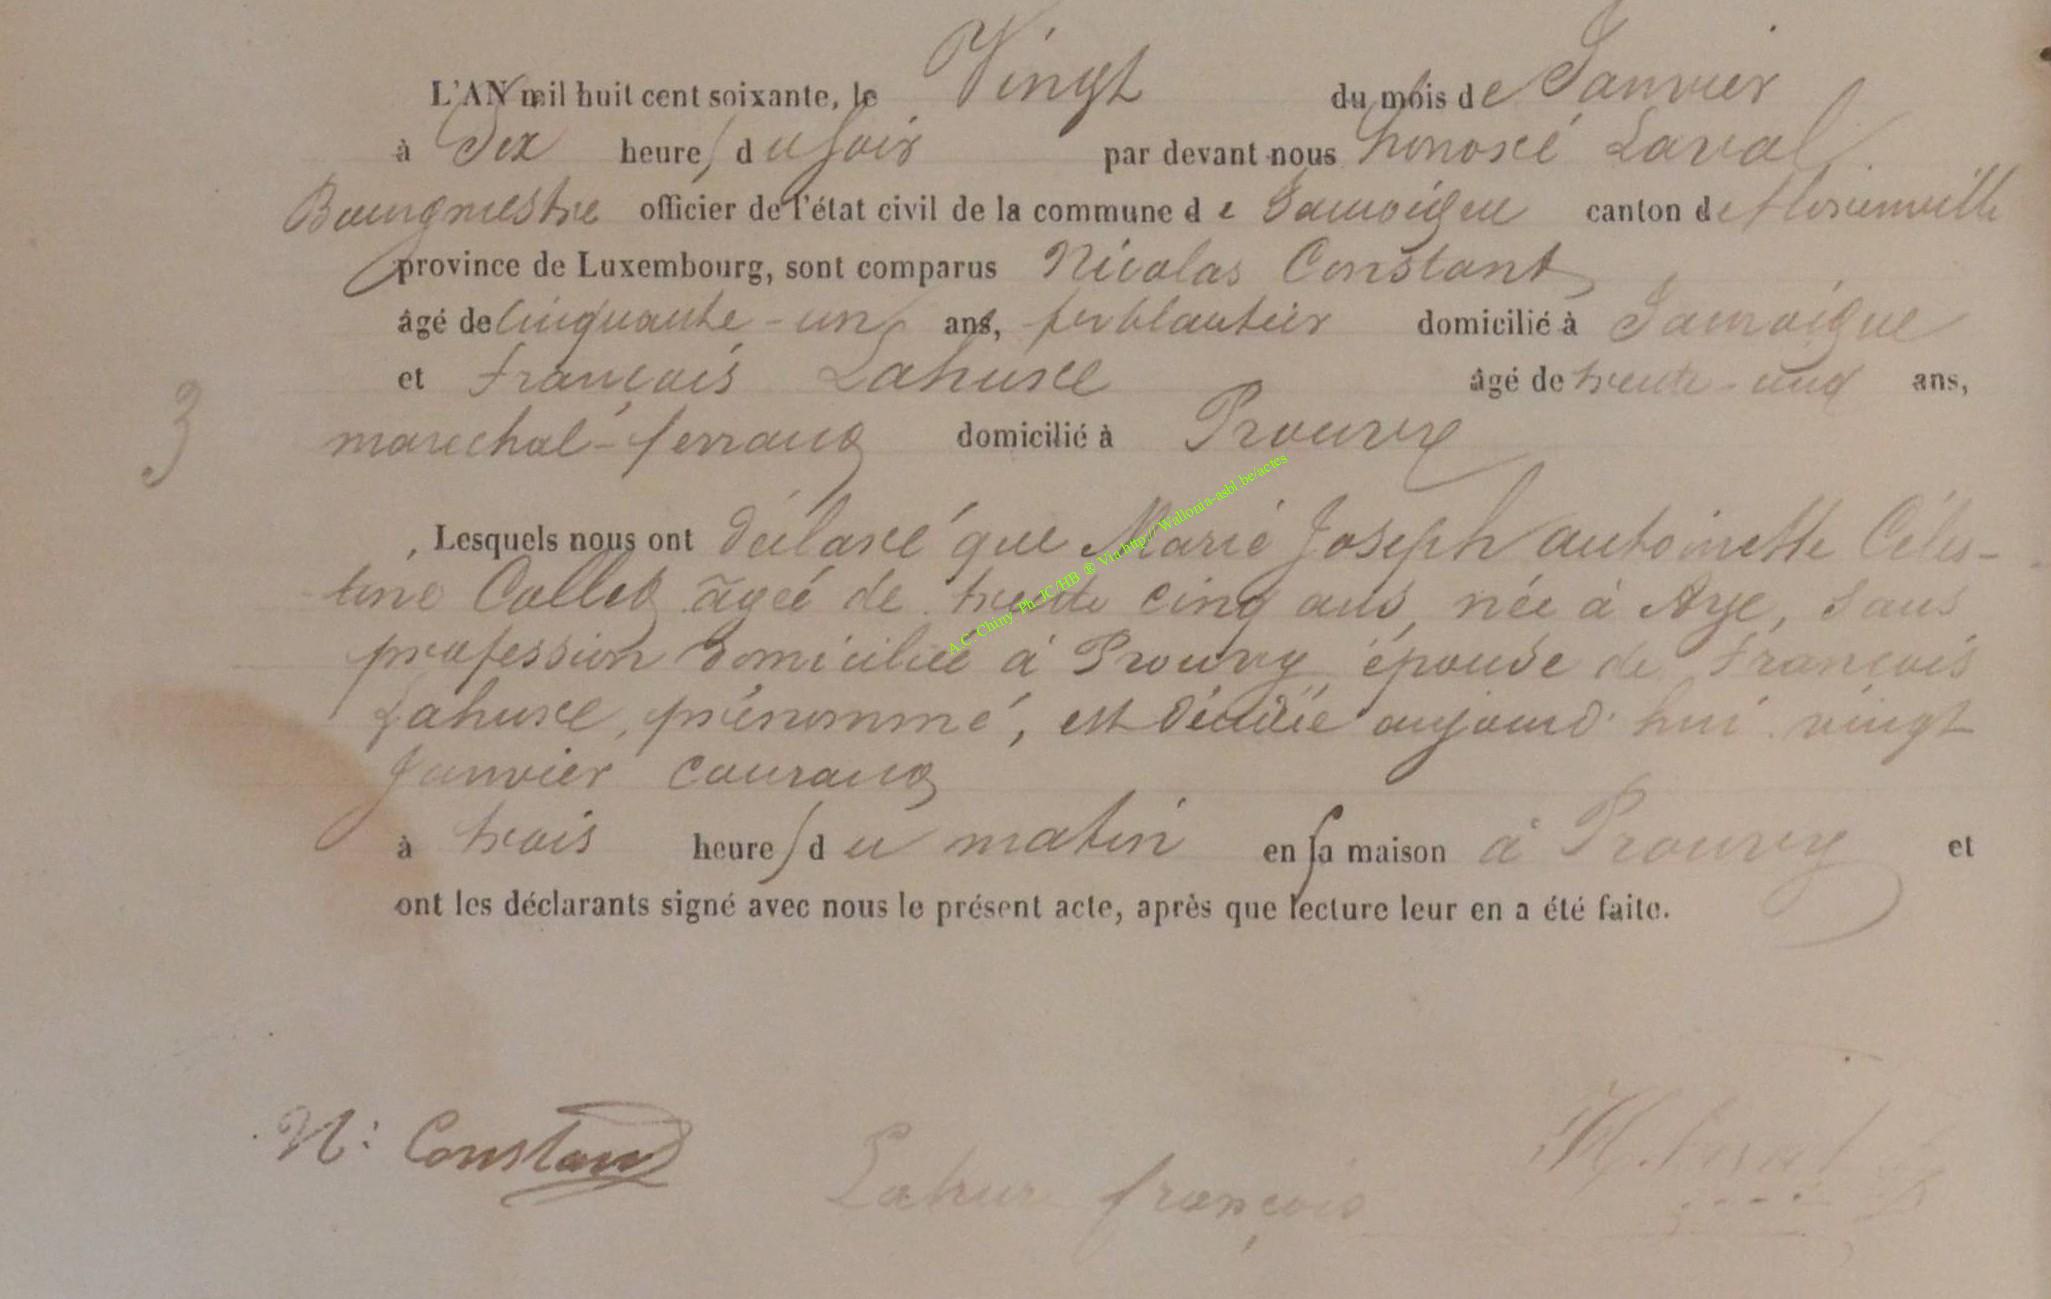 L'AN mil huit cent soixante, le Vingt du mois de Janvier
à Dix heures du soir par devant nous honoré Laval
Bourgmestre officier de l'état civil de la commune de Jamoigne canton de Florenville
province de Luxembourg, sont comparus Nicolas Constant
âgé de cinquante-un ans, ferblantier domicilié à Jamoigne
et François Lahure âgé de trente-un ans,
3 marechal-ferrant domicilié à Prouvy
, Lesquels nous ont déclaré que Marie Joseph antoinette Céles-
tine Collet âgée de trente cinq ans, née à Aye, sans
profession domiciliée à Prouvy, épouse de François
Lahure, prénommé, est décédée aujourd'hui vingt
Janvier courant
à trois heures du matin en sa maison à Prouvy et
ont les déclarants signé avec nous le présent acte, après que lecture leur en a été faite.
N: Constant
Lahure françois
H. Laval
A.C. Chiny Ph. JC/HB ® Via http://Wallonia-asbl.be/actes